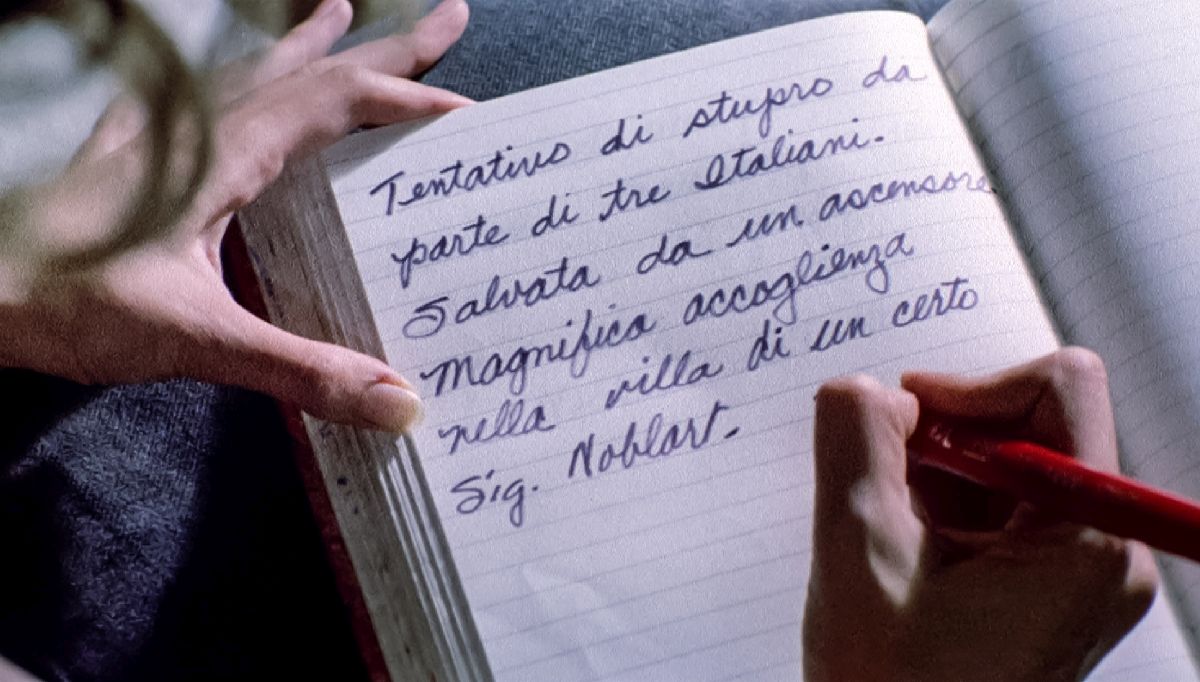 Tentativo di stupro da
parte di tre Italiani.
Salvata da un ascensore
Magnifica accoglienza
nella villa di un certo
Sig. Noblart.